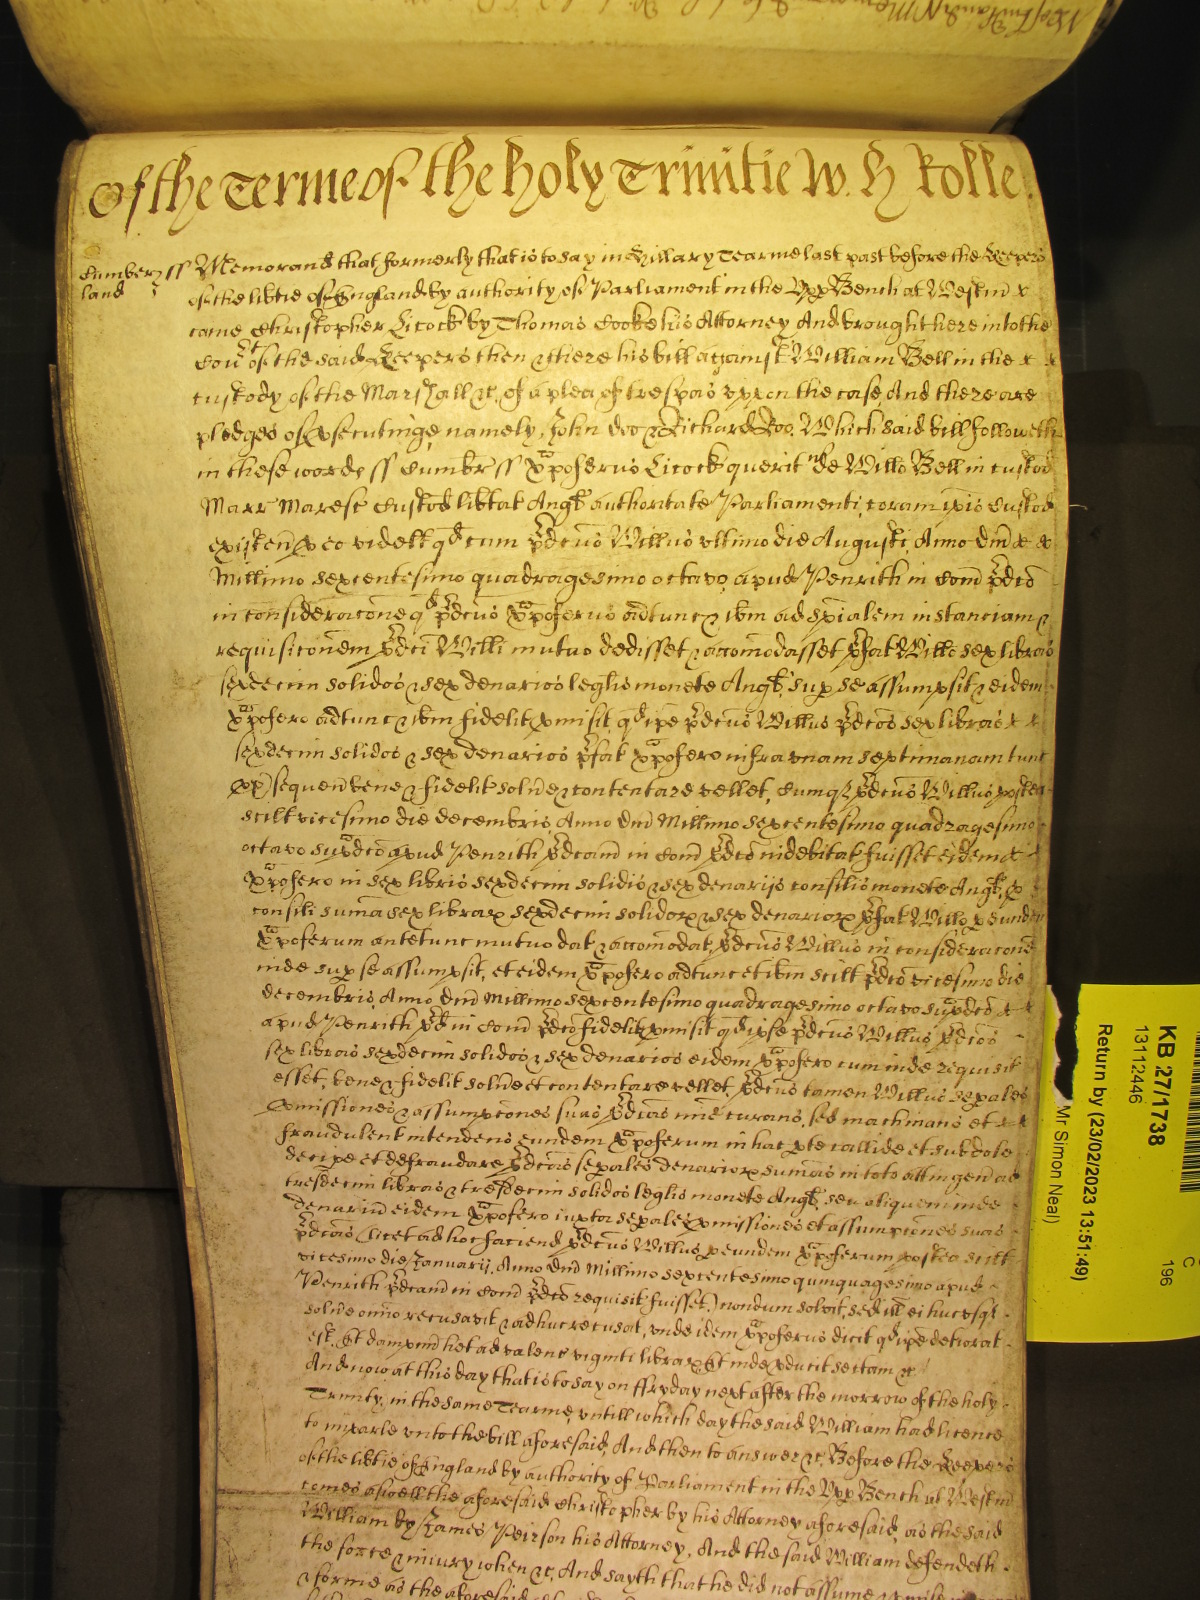 Of the Terme of the holy Trinitie W. H Rolle.
Cumber ss Memorand that formerly that is to say in Hillary Tearme last past before the Keepers
land
of the libtie of England by authority of Parliament in the Upp Bench at Westm
came Christopher Cicock by Thomas Cooke his Attorney And brought here into the
Cour^t of the said Keepers then & there his bill against William Bell in the
custody of the Marshall &c. of a plea of trespas uppon the case, And there are
pledges of psecutinge namely, John Doo & Richard Roo. Which said bill followeth
in these wordes ss Cumbr ss Xpoferus Cicock querit^r de Willo Bell in custod
Marr Maresc Custod libtat Angl authoritate Parliamenti, coram ipis Custod
existen p eo videlt qd cum pdcus Willus ultimo die Augusti, Anno Dni
Millimo sexcentesimo quadragesimo octavo, apud Penrith in Com pdco
in consideracone qd pdcus Xpoferus adtunc & ibm ad spialem instanciam &
requisiconem pdci Willi mutuo dedisset & accomodasset pfat Willo sex libras
sexdecim solidos & sex denarios leglis monete Angl, sup se assumpsit & eidem
Xpofero adtunc & ibm fidelit pmisit, qd ipe pdcus Willus pdcos sex libras
sexdecim solidos & sex denarios pfat Xpofero infra unam septimanam tunc
px sequen bene & fidelit solvre & contentare vellet, Cumq pdcus Willus postea
scilt vicesimo die Decembris, Anno Dni Millimo sexcentesimo quadragesimo
octavo supdco apud Penrith pdcam in Com pdco indebitat fuisset eidem
Xpofero in sex libris sexdecim solidis & sex denarijs consilis monete Angl, p
consili suma sex librar sexdecim solidor & sex denarior pfat Willo p eund
Xpoferum antetunc mutuo dat & accomodat, pdcus Willus in consideracone
inde sup se assumpsit, et eidem Xpofero adtunc et ibm scilt pdco vicesimo die
Decembris, Anno Dni Millimo sexcentesimo quadragesimo octavo supdco
apud Penrith pd in Com pdco fidelit pmisit qd ipse pdcus Willus pdcos
sex libras sexdecim solidos & sex denarios eidem Xpofero cum inde requisit
esset, bene & fidelit solvre et contentare vellet, pdcus tamen Willus sepales
pmissiones & assumpcones suas pdcas mie curans, sed machinans et
fraudulent intendens eundem Xpoferum in hac pte callide et subdole
decipe et defraudare, pdcas sepales denarior sumas in toto attingen ad
tresdecim libras & tresdecim solidos leglis monete Angl, seu aliquem inde
denariu eidem Xpofero iuxta sepales pmissiones et assumpcones suas
pdcas (licet ad hoc faciend pdcus Willus p eundem Xpoferum postea scilt
vicesimo die Januarij, Anno Dni Millimo sexcentesimo quinquagesimo apud
Penrith pdcam in Com pdco requisit fuisset,) nondum solvit, sed ill ei hucusq
solvre omio recusavit & adhuc recusat, unde idem Xpoferus dicit qd ipe deteriorat
est, Et dampnu het ad valenc viginti librar Et inde pducit sectam &c
And now at this day that is to say on ffryday next after the morrow of the holy
Trinity, in the same Tearme, untill which day the said William had licence
to imparle unto the bill aforesaid, And then to answer &c, Before the Keepers
of the libtie of England by authority of Parliament in the Upp Bench at Westm
comes aswell the aforesaid Christopher by his Attorney aforesaid, as the said
William by James Peirson his Attorney, And the said William defendeth
the force & iniury when &c, And sayth that he did not assume
& forme as the aforesaid
KB 27/1738
13112446
C
196
Return by (23/02/2023 13:51:49)
Mr Simon Neal)